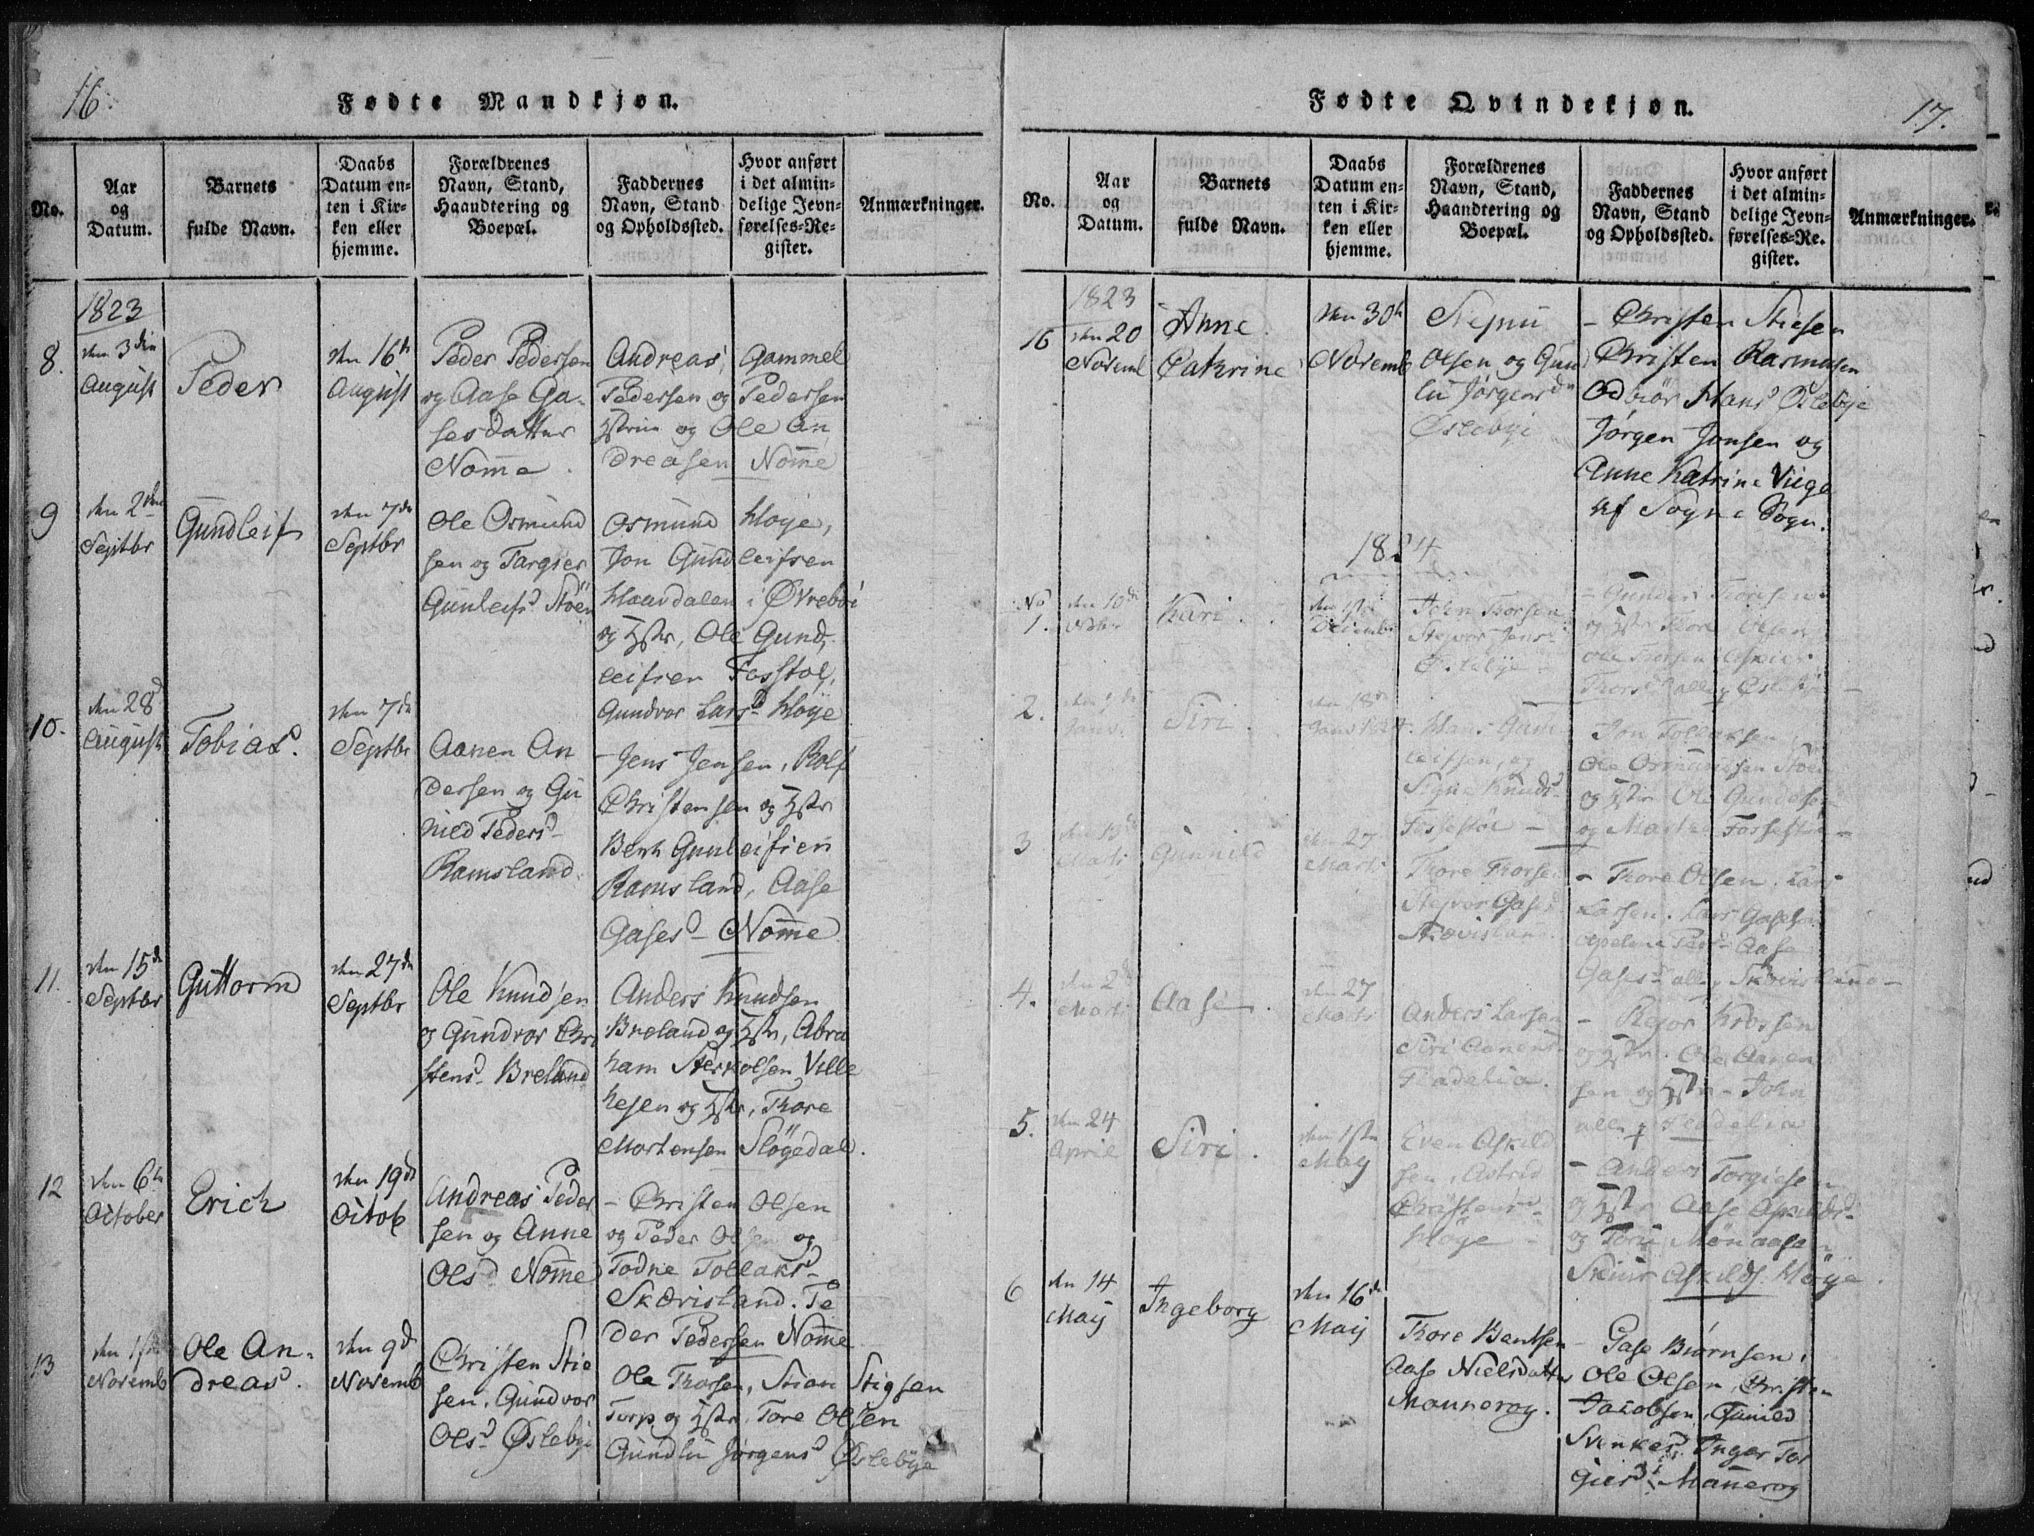 16.
Fødte Mandkjøn.
No.
Aar
og
Datum.
Barnets
fulde Navn.
Daabs
Datum en=
ten i Kir=
ken eller
hjemme.
Forældrenes
Navn, Stand,
Haandtering og
Boepæl.
Faddernes
Navn, Stand
og Opholdssted.
Hvor anført
i det almin=
delige Jevn=
førelses=Re=
gister.
Anmærkninger.
1823
8.
den 3die
August
Peder
den 16de
August
Peder Pedersen
og Aase Ga-
sesdatter
Nome.
Andreas, Gammel
Pedersen og Pedersen
og Ole An
dreasen Nome
9
den 2den
Septbr
Gundleif
den 7de
Septbr
Ole Osmund
sen og Targier
Gunleifsd Støen
Osmund Høye,
Jon Gundleifsen
Haardalen i Øvrebøi
og Hstr, Ole Gund,
leifsen Fosstøl,
Gundvor Larsd Høye
10.
den 28
August
Tobias.
den 7de
Septbr
Aanen An
dersen og Gu
nild Pedersd
Ramsland.
- Jens Jensen, Rolf
Christensen og Hstr
Bent Gunleifsen
Ramsland, Aase
Gasesd - Nome
11.
den 15de
Septbr
Guttorm
den 27de
Septbr
Ole Knudsen
og Gundvor Chri
stensd Breland
Anders Knudsen
Breland og Hstr, Abra
ham Sterkolsen Ville
hejen og Hstr, Thore
Mortensen Sløgedal.
12
den 6te
October
Erich
den 19de
Octob
Andreas Peder
sen og Anne
Olsd Nome
- Christen Olsen
og Peder Olsen og
Todne Tollaksd
Skævisland. Pe
der Pedersen Nome
13
den 1ste
Novemb
Ole An-
dreas.
den 9de
Novemb
Christen Stie
sen, Gundvor
Olsd Øslebye
Ole Thorsen, Stian Stigsen
Torp og Hstr, Tore Olsen
Gundlu Jørgensd Øslebye
17.
Fødte Qvindekjøn.
No.
Aar
og
Datum.
Barnets
fulde Navn.
Daabs
Datum en=
ten i Kir=
ken eller
hjemme.
Forældrenes
Navn, Stand,
Haandtering og
Boepæl.
Faddernes
Navn, Stand
og Opholdssted.
Hvor anført
i det almin=
delige Jevn=
førelses=Re=
gister.
Anmærkninger.
1823
16
den 20
Novemb
Anne
Cathrine
den 30te
Novemb
Olsen og Gun
lu Jørgensd
Øslebye
- Christen Stiesen
Christen Rasmusen
Odbiør Hansd Øslebye
Jørgen Jonsen og
Anne Katrine Viige
af Sogne Sogn.
1824
No
1.
den 10de
Kari.
den 1ste
Decembr
John Thorsen
Stejvor Jensd
Øslebye -
- Gunder
og Hstr Thore Olsen
Ole Thorsen
Thorsd alle Øslebye -
2.
Siri.
den 18de
Hans Gun
leifsen, og
Signe Knudsd
Fossestøl -
Jon Tollaksen
Ole Osmundsen Støen
og Hstr Ole Gundersen
og Marthe Fossestøl -
3
den 13de
Marts
Gunnild
den 27
Marts
Thore Thorsen
Stejvor Gasesd
Skævisland
- Thore Olsen. Lars
Larsen. Lars Gasesen
Aase
Gasesd alle Skævisland -
4.
den 2de
Marts
Aase.
den 27
Marts
Anders Larsen
Siri Aanensd
Fladelia.
- Rejor
og Hstr. Ole Aanen
sen og Hstr - John
alle Fladelia
5.
den 24
April
Siri.
den 1ste
May
Even Askild
sen, Astrid
Christensd -
Høye -
- Anders Torgiesen
og Hstr Aase
og Torii
Askilds Høye.
6
den 14
May
Ingeborg
den 16de
May
Thore Bentsen
Aase Nielsdatter
Monnerog.
- Gase Biørnsen,
Ole Olsen, Christen
Jacobsen, Gunild
Svenkesd. Inger Tor
giersd Manerog